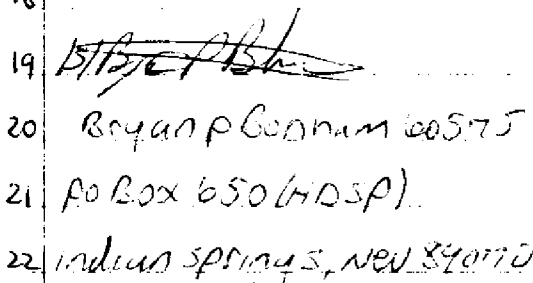 19 /s/
20 Bryan P Bonham 60575
21 PO BOX 650 (HDSP)
22 indian springs, Nev 89070